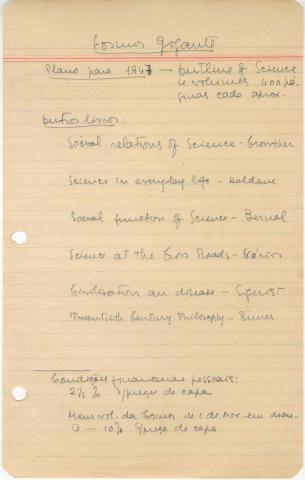 Cosmos Gigante
Plano para 1947 — Outline of Science
4 volumes 400 pá-
ginas cada aprox.
Outros livros:
Social relations of Science - Crowther
Science in everyday life - Haldane
Social function of Science - Bernal
Science at the Cross Roads - Vários
Civilization and disease - Sigerist
Twentieth Century Philosophy - Runes
Condições financeiras pessoais:
2½ % s/preço de capa
Mens vol. da Cosmos de 1 de Nov. em dian-
te — 10% s/preço de capa.